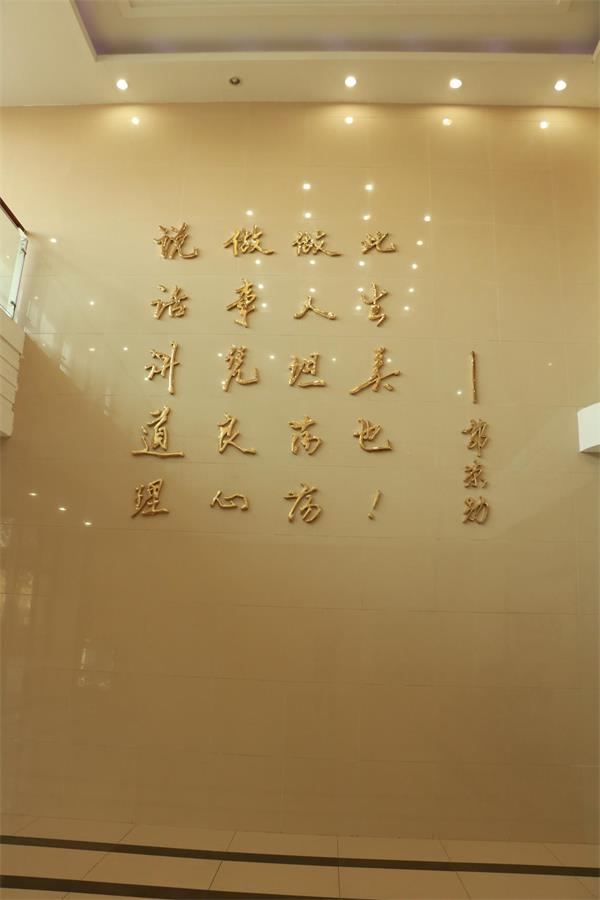 说话讲道理
做事凭良心
做人坦荡荡
此生美也！
—郭京